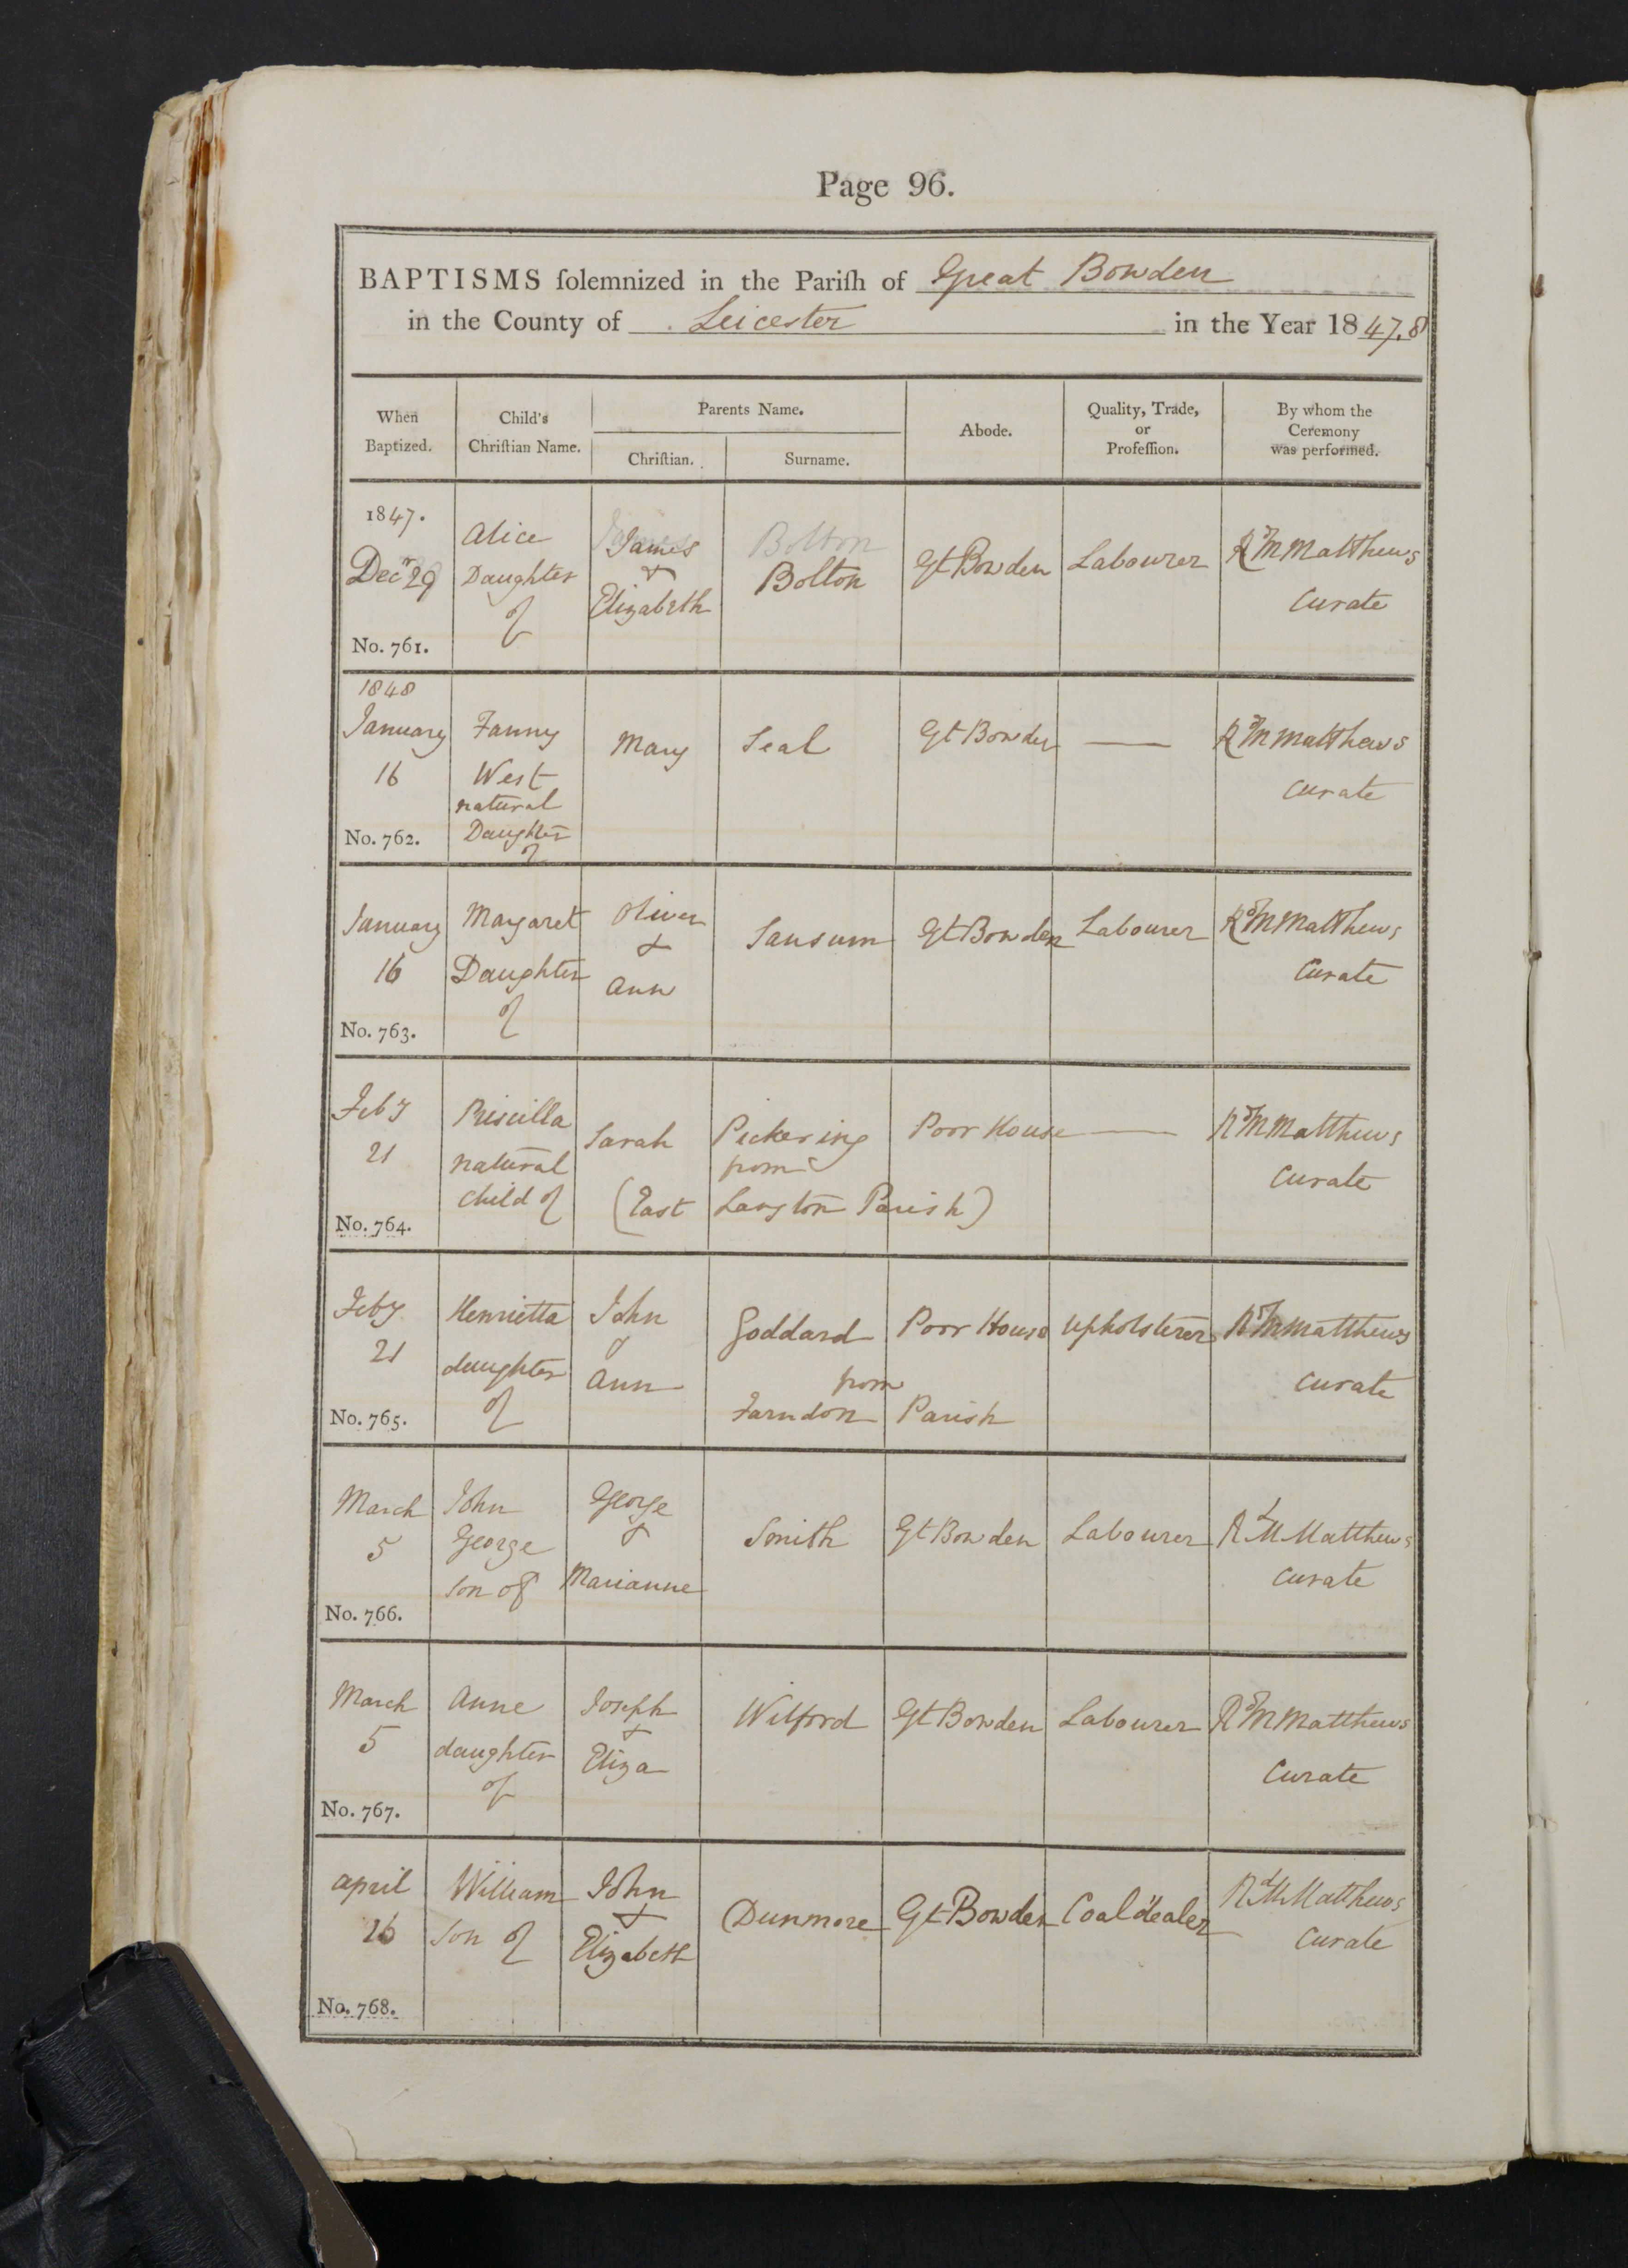 Page 96.
BAPTISMS ſolemnized in the Pariſh of Great Bowden
in the County of Leicester in the Year 1847.8
When Baptized.
Child's Chriſtian Name.
Parents Name.
Chriſtian.
Surname.
Abode.
Quality, Trade, or Profeſſion.
By whom the Ceremony was performed.
1847.
Decr 29
No. 761.
Alice
Daughter
of
James
&
Elizabeth
Bolton
Bolton
Gt Bowden
Labourer
Rd M Matthews
Curate
1848
January
16
No. 762.
Fanny
West
natural
Daughter
of
Mary
Seal
Gt Bowden
—
Rd M Matthews
Curate
January
16
No. 763.
Margaret
Daughter
of
Oliver
&
Ann
Sansum
Gt Bowden
Labourer
Rd M Matthews
Curate
Feby
21
No. 764.
Priscilla
natural
child of
Sarah
Pickering
from
(East Langton Parish)
Poor House
—
Rd M Matthews
Curate
Feby
21
No. 765.
Henrietta
daughter
of
John
&
Ann
Goddard
from
Farndon Parish
Poor House
Upholsterer
Rd M Matthews
Curate
March
5
No. 766.
John
George
Son of
George
&
Marianne
Smith
Gt Bowden
Labourer
Rd M Matthews
Curate
March
5
No. 767.
Anne
daughter
of
Joseph
&
Eliza
Wilford
Gt Bowden
Labourer
Rd M Matthews
Curate
April
26
No. 768.
William
Son of
John
&
Elizabeth
Dunmore
Gt Bowden
Coal dealer
Rd M Matthews
Curate